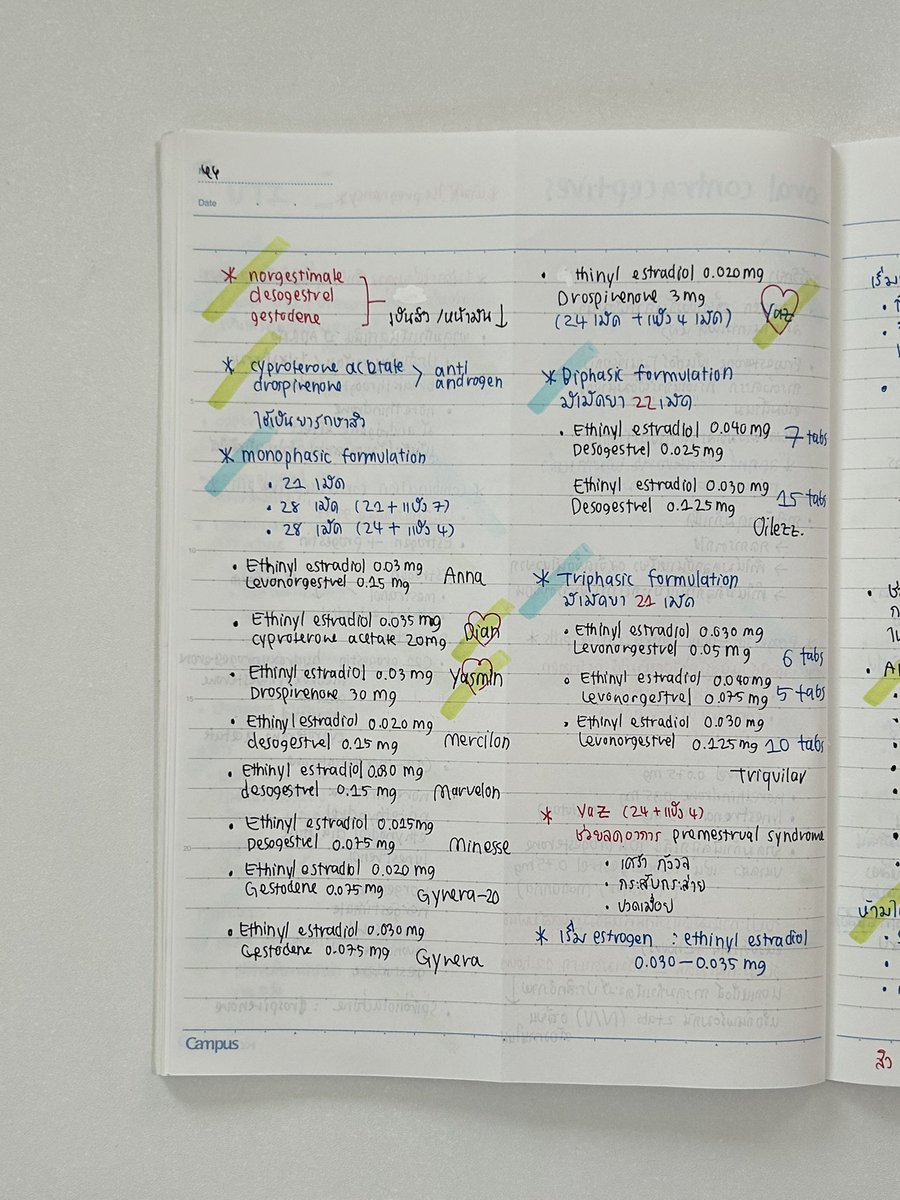 44
Date
* norgestimate
desogestrel
gestodene
เป็นสิว /หน้ามัน ↓
* cyproterone acetate > anti
drospirenone androgen
ใช้เป็นยารักษาสิว
* monophasic formulation
• 21 เม็ด
• 28 เม็ด (21+ แป้ง 7)
• 28 เม็ด (24+ แป้ง 4)
• Ethinyl estradiol 0.03 mg
Levonorgestrel 0.15 mg Anna
• Ethinyl estradiol 0.035 mg
cyproterone acetate 20mg Dian
• Ethinyl estradiol 0.03 mg Yasmin
Drospirenone 30 mg
• Ethinyl estradiol 0.020 mg
desogestrel 0.15 mg Mercilon
• Ethinyl estradiol 0.030 mg
desogestrel 0.15 mg Marvelon
• Ethinyl estradiol 0.015mg
Desogestrel 0.075 mg Minesse
• Ethinyl estradiol 0.020 mg
Gestodene 0.075 mg Gynera-20
• Ethinyl estradiol 0.030 mg
Gestodene 0.075 mg Gynera
Campus
• thinyl estradiol 0.020 mg
Drospirenone 3 mg Yaz
(24 เม็ด + แป้ง 4 เม็ด)
* Biphasic formulation
มีเม็ดยา 22 เม็ด
• Ethinyl estradiol 0.040 mg 7 tabs
Desogestrel 0.025 mg
Ethinyl estradiol 0.030 mg
Desogestrel 0.125 mg 15 tabs
Oilezz.
* Triphasic formulation
มีเม็ดยา 21 เม็ด
• Ethinyl estradiol 0.030 mg
Levonorgestrel 0.05 mg 6 tabs
• Ethinyl estradiol 0.040 mg
Levonorgestrel 0.075 mg 5 tabs
• Ethinyl estradiol 0.030 mg
Levonorgestrel 0.125 mg 10 tabs
Triquilar
* Yaz (24+แป้ง 4)
ช่วยลดอาการ premestrual syndrome
• เศร้า กังวล
• กระสับกระส่าย
• ปวดเมื่อย
* เริ่ม estrogen : ethinyl estradiol
0.030 – 0.035 mg
สิว